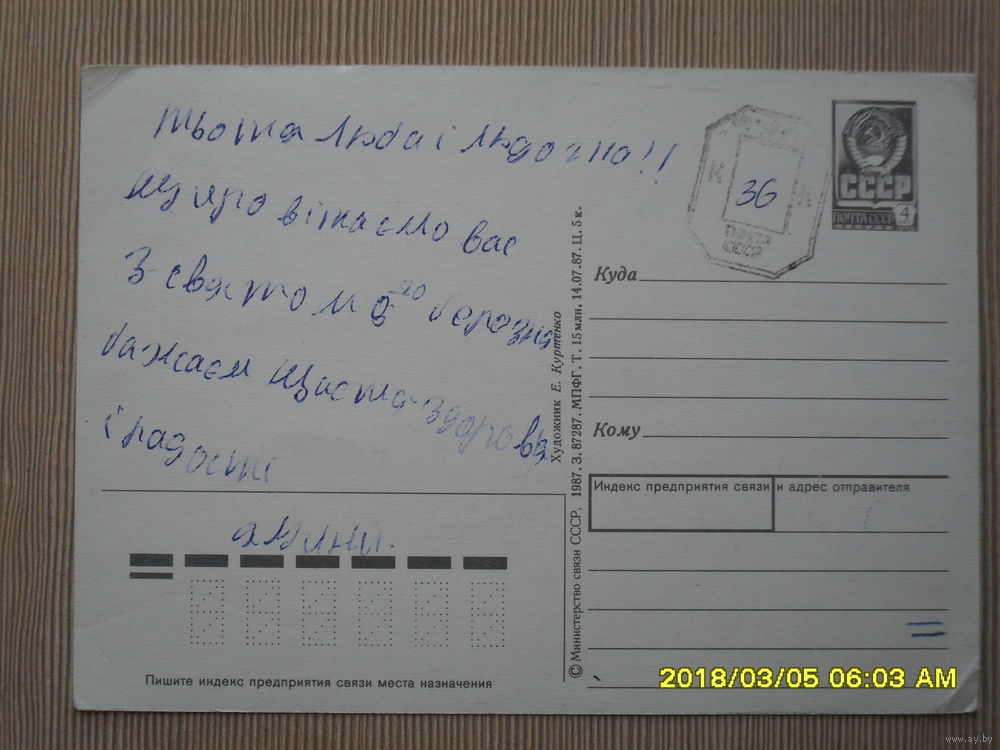 тьотя Люба і Людочка!!
щиро вітаємо вас
З святом 8-го березня
бажаєм щастя здоровя
і радості
К 36 К
ПОЧТА
СССР
СССР
ПОЧТА СССР 4
Куда
Кому
Индекс предприятия связи и адрес отправителя
© Министерство связи СССР, 1987. З. 87287. МПФГ. Т. 15 млн. 14.07.87 Ц. 5 к.
Художник Е. Куртенко
Пишите индекс предприятия связи места назначения
2018/03/05 06:03 AM
www.ay.by